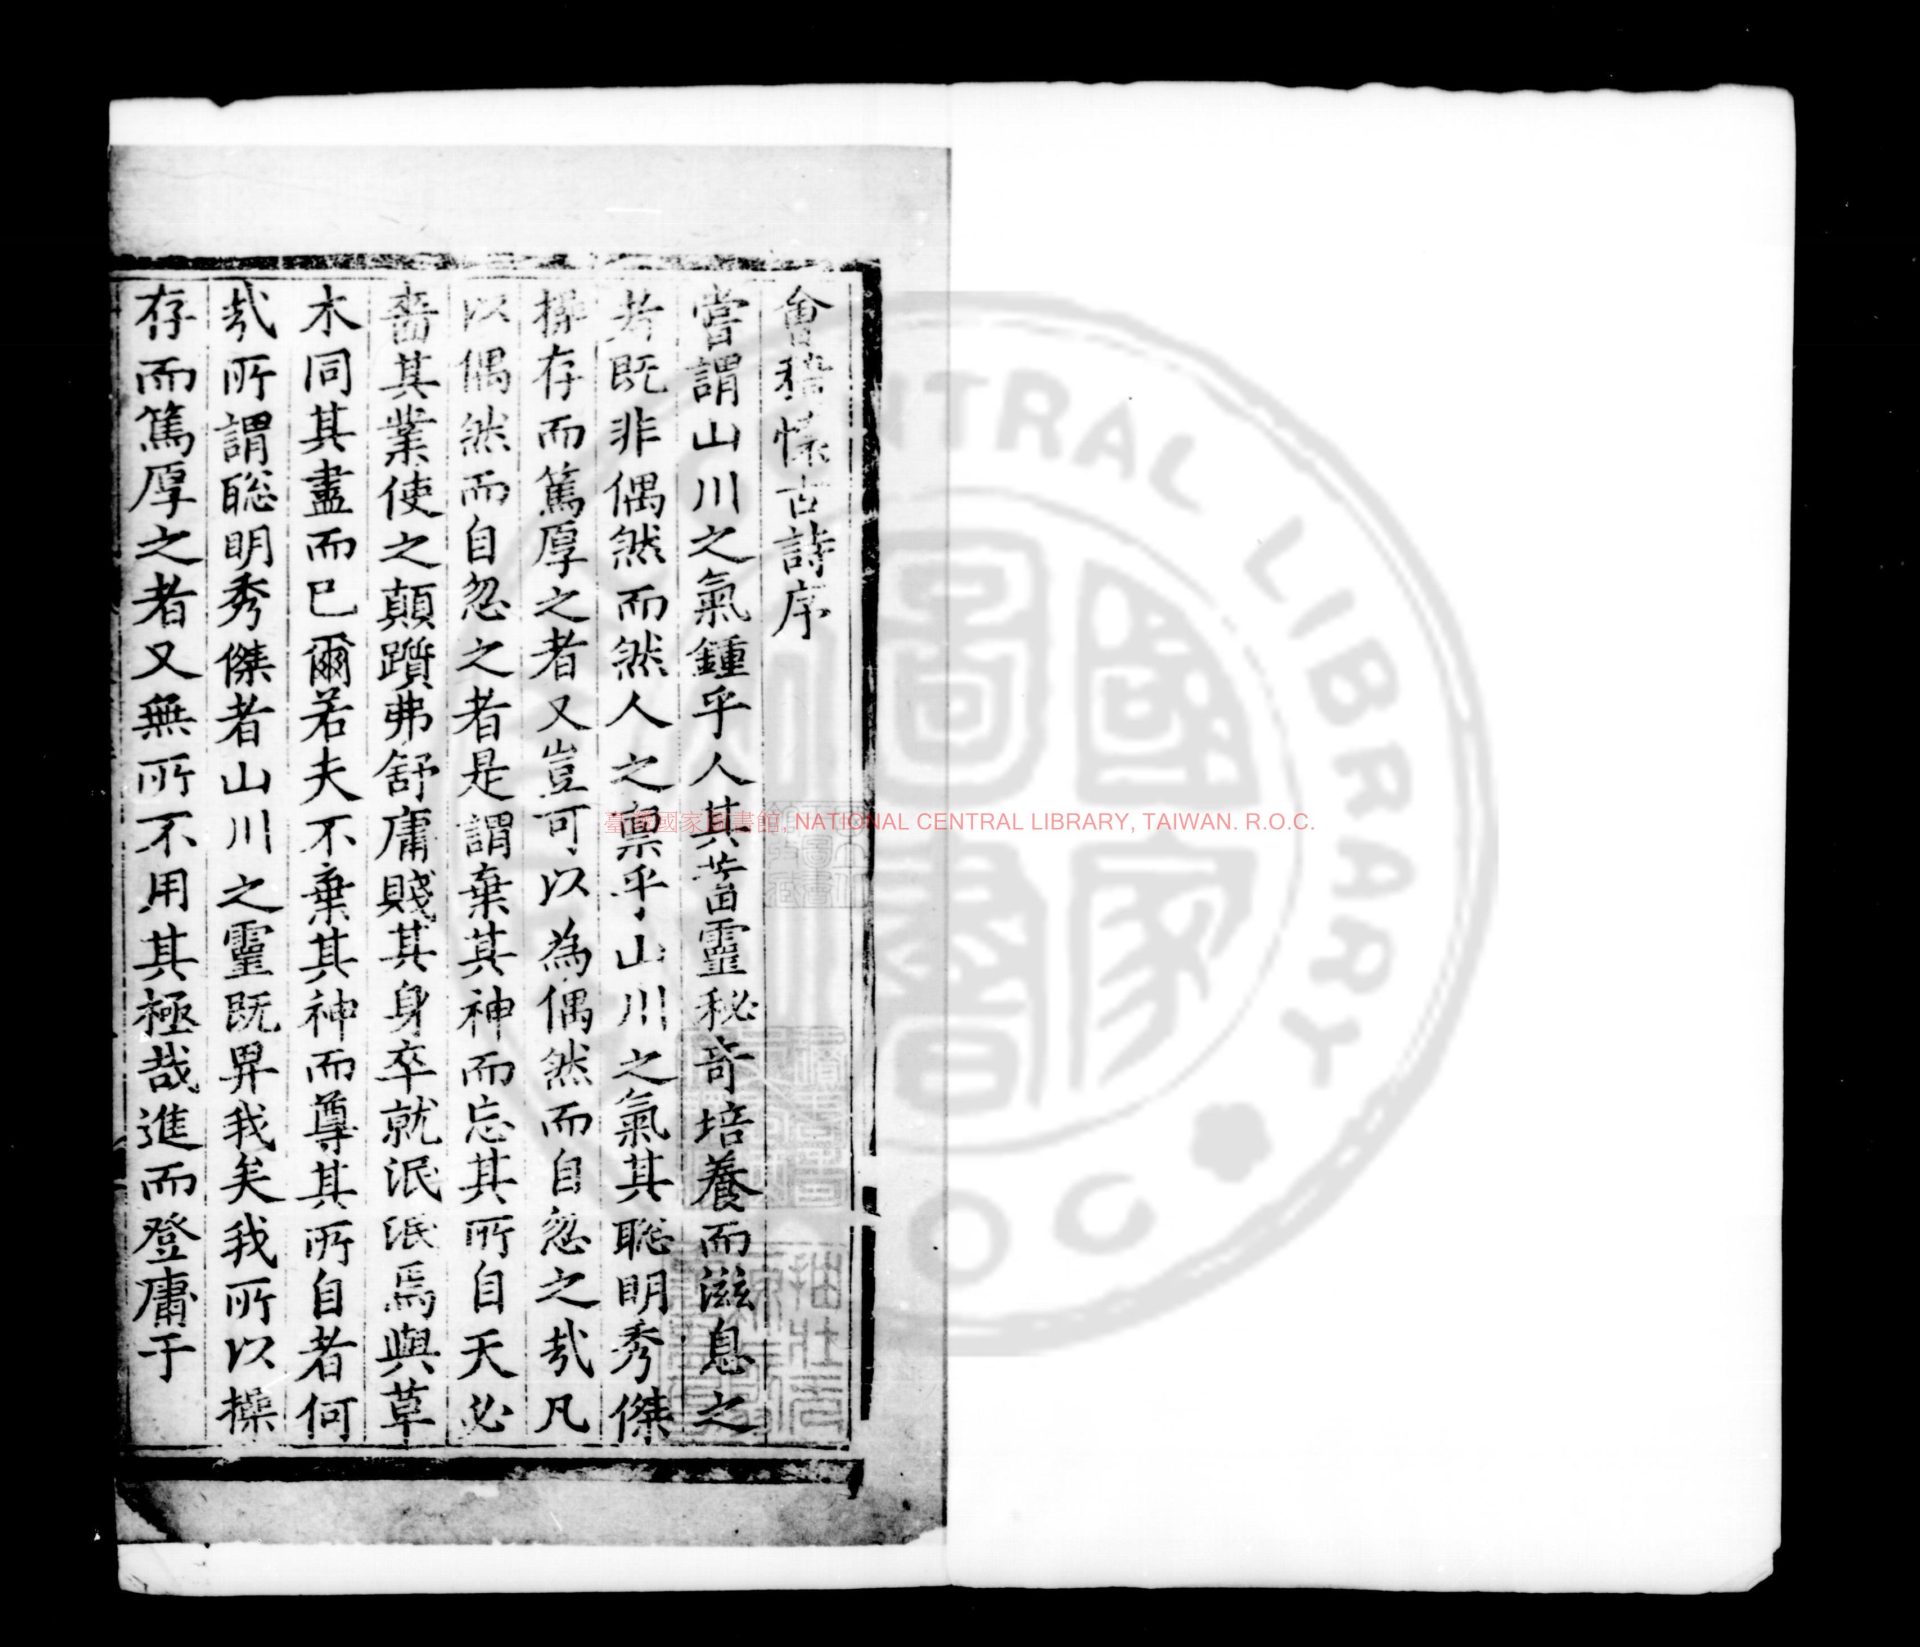 會稽懷古詩序
嘗謂山川之氣鍾乎人其蓄靈秘奇培養而滋息之
者既非偶然而然人之禀乎山川之氣其聡明秀傑
操存而篤厚之者又豈可以為偶然而自忽之㢤凡
以偶然而自忽之者是謂棄其神而忘其所自天必
嗇其業使之顛躓弗舒庸賤其身卒就泯泯焉與草
木同其盡而已爾若夫不棄其神而尊其所自者何
㢤所謂聡明秀傑者山川之靈既畀我矣我所以操
存而篤厚之者又無所不用其極哉進而登庸于
臺灣國家圖書館, NATIONAL CENTRAL LIBRARY, TAIWAN. R.O.C.